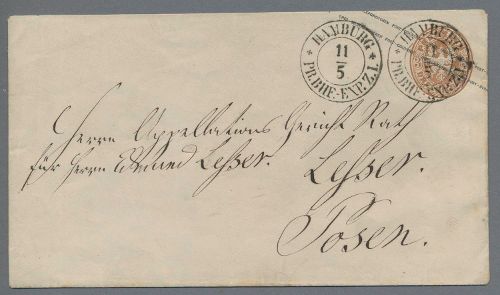 HAMBURG
11/5
PR. BHF.-EXP. Z. I.
HAMBURG
PR. BHF.-EXP. Z. I.
Herrn Appellations Gericht Rath
für Herrn Lesser. Lesser.
Posen.